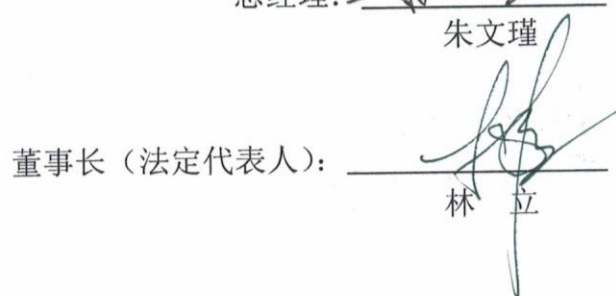 总经理：
朱文瑾
董事长（法定代表人）：
林 立